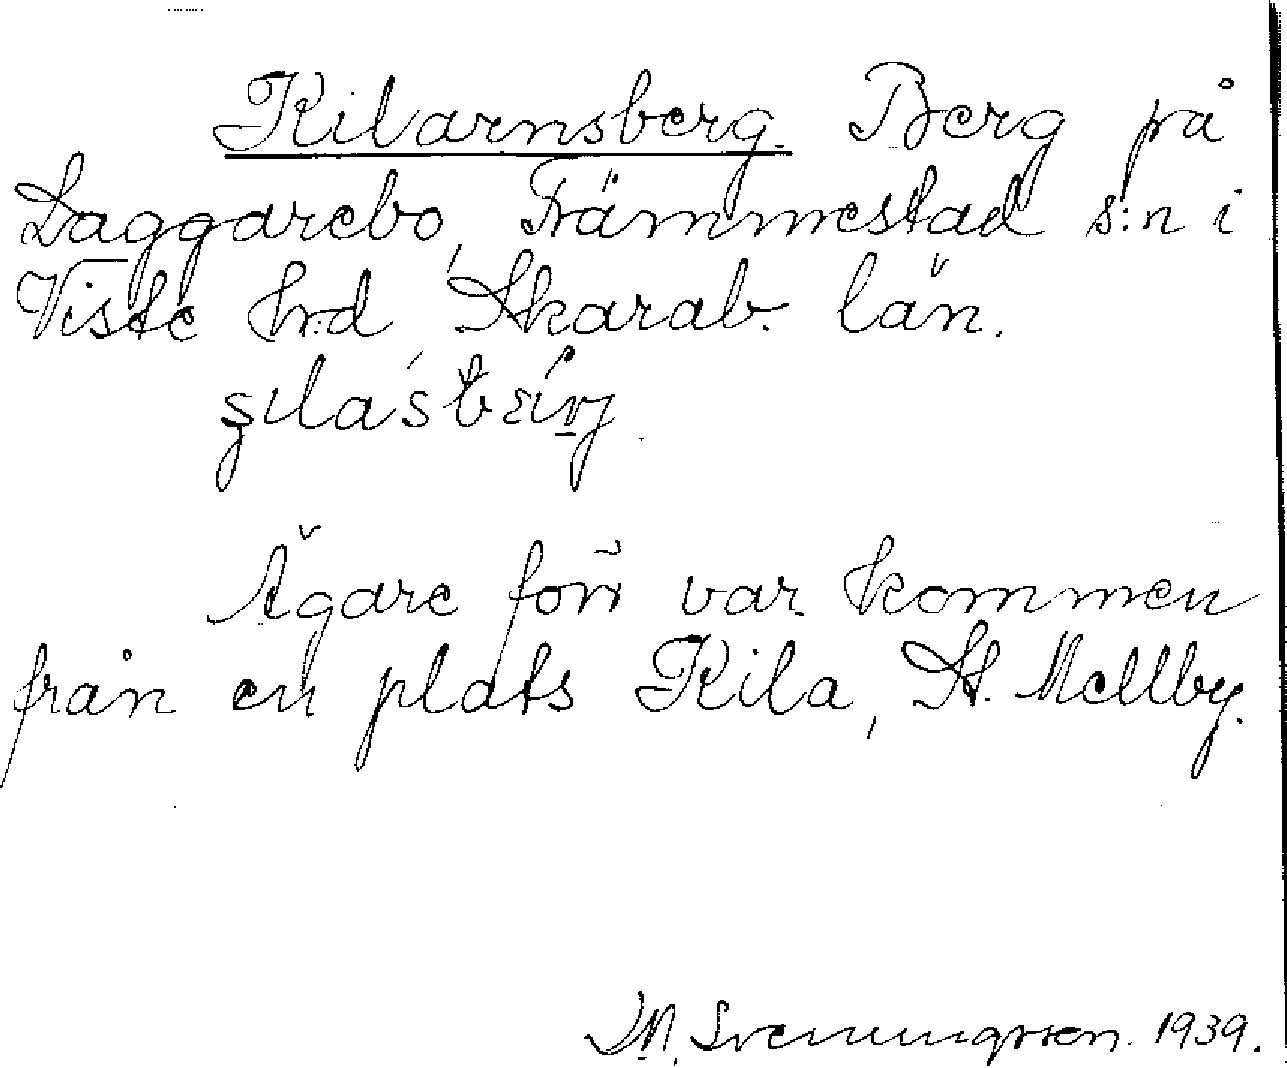 Kilarnsberg. Berg på
Laggarebo, Främmestad s:n i
Viste hrd Skarab. län.
Ägare förr var kommen
från en plats Kila, St. Mellby.
Svenungsson. 1939.